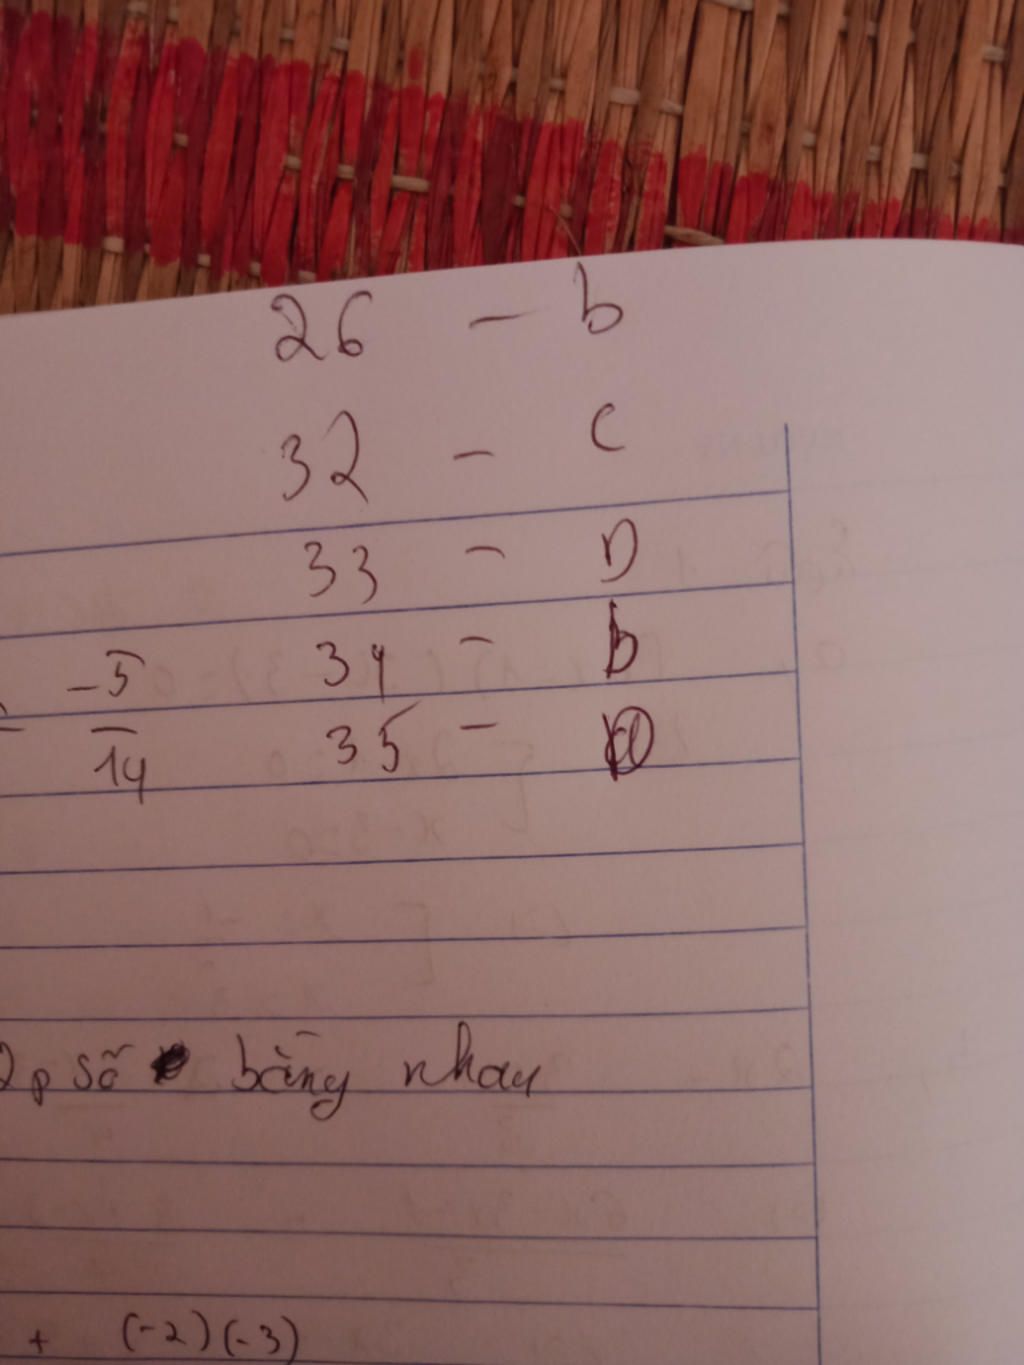 26 - b
32 - c
33 - D
-5 34 - b
14 35 -
2 p số bằng nhau
+ (-2)(-3)